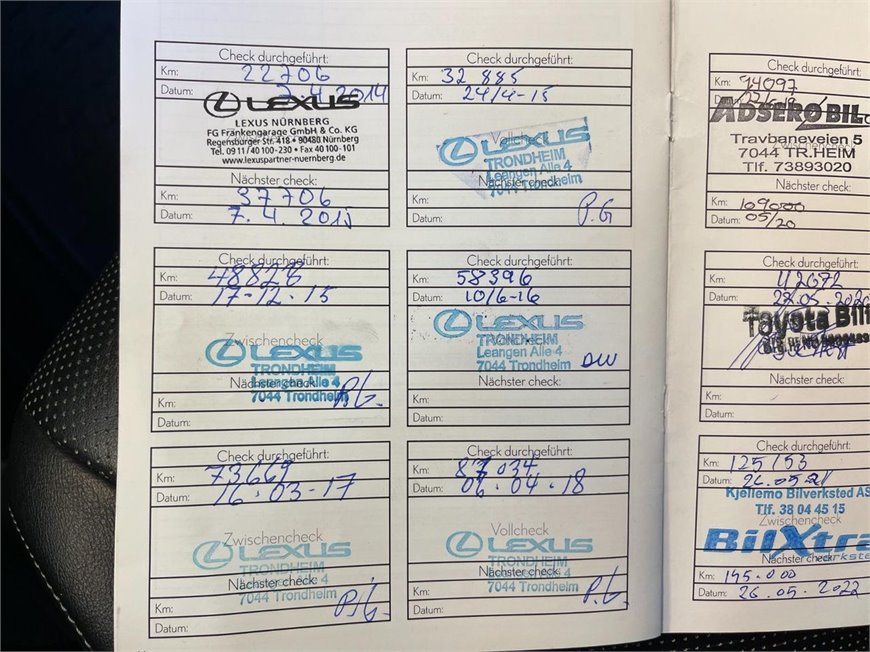 Check durchgeführt:
Km: 22706
Datum: 7.4.2014
LEXUS
LEXUS NÜRNBERG
FG Frankengarage GmbH & Co. KG
Regensburger Str. 418 • 90480 Nürnberg
Tel. 09 11/ 40 100-230 • Fax 40 100-101
www.lexuspartner-nuernberg.de
Nächster check:
Km: 37706
Datum: 7.4.2015
Check durchgeführt:
Km: 32 885
Datum: 24/4-15
Vollcheck
LEXUS
TRONDHEIM
Leangen Alle 4
Nächster check:
7044 Trondheim
Km:
P.G
Datum:
Check durchgeführt:
Km: 48828
Datum: 17-12.15
Zwischencheck
LEXUS
TRONDHEIM
Nächster check:
Leangen Alle 4
Km: 7044 Trondheim
Datum:
Check durchgeführt:
Km: 58396
Datum: 10/6-16
LEXUS
TRONDHEIM
Leangen Alle 4
7044 Trondheim
Nächster check:
Km:
Datum:
Check durchgeführt:
Km: 73669
Datum: 16.03-17
Zwischencheck
LEXUS
TRONDHEIM
Nächster check:
7044 Trondheim
Km:
Datum:
Check durchgeführt:
Km: 87034
Datum: 06.04.18
Vollcheck
LEXUS
TRONDHEIM
Nächster check:
7044 Trondheim
Km:
P.G.
Datum:
Check durchgeführt:
Km: 94097
ADSERØ BIL
Travbaneveien 5
7044 TR.HEIM
Tlf. 73893020
Nächster check:
Km: 109000
Datum: 05/20
Check durchgeführt:
Km: 112672
Datum: 27.05.2020
Toyota Bil
Nächster check:
Km:
Datum:
Check durchgeführt:
Km: 125153
Datum: 26.05.21
Kjellemo Bilverksted AS
Tlf. 38 04 45 15
Zwischencheck
BilXtra
verksted
Nächster check:
Km: 145.000
Datum: 26.05.2022